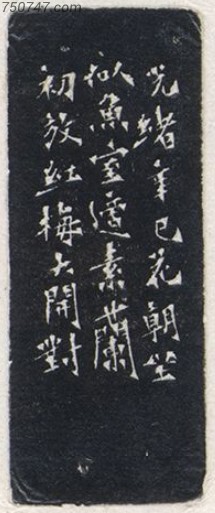 750747.com
光緒辛巳花朝坐
似魚室適素蘭
初放紅梅大開對